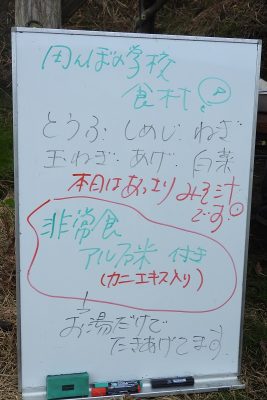 田んぼの学校
食材
とうふ しめじ ねぎ
玉ねぎ あげ 白菜
本日はあっさりみそ汁
です。
非常食
アルファ米 付き
(カニエキス入り)
お湯だけで
たきあげてます。